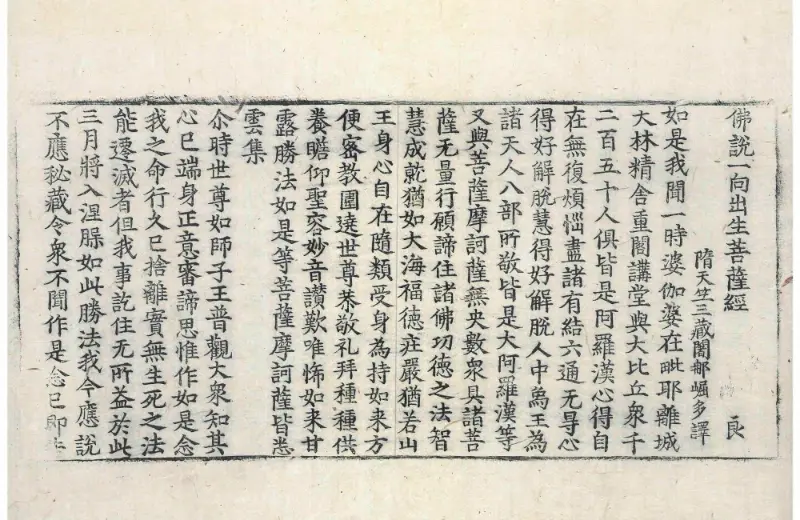 佛說一向出生菩薩經 良
隋天竺三藏闍那崛多譯
如是我聞一時婆伽婆在毗耶離城
大林精舍重閣講堂與大比丘衆千
二百五十人俱皆是阿羅漢心得自
在無復煩惱盡諸有結六通无㝵心
得好解脫慧得好解脫人中爲王爲
諸天人八部所敬皆是大阿羅漢等
又與菩薩摩訶薩無央數衆具諸菩
薩无量行願諦住諸佛功德之法智
慧成就猶如大海福德莊嚴猶若山
王身心自在隨類受身為持如来方
便密教圍遶世尊恭敬礼拜種種供
養瞻仰聖容妙音讃歎唯悕如来甘
露勝法如是等菩薩摩訶薩皆悉
雲集
尒時世尊如師子王普觀大衆知其
心已端身正意審諦思惟作如是念
我之命行久已捨離實無生死之法
能遷滅者但我事訖住无所益於此
三月將入涅槃如此勝法我今應說
不應秘藏令衆不聞作是念已即